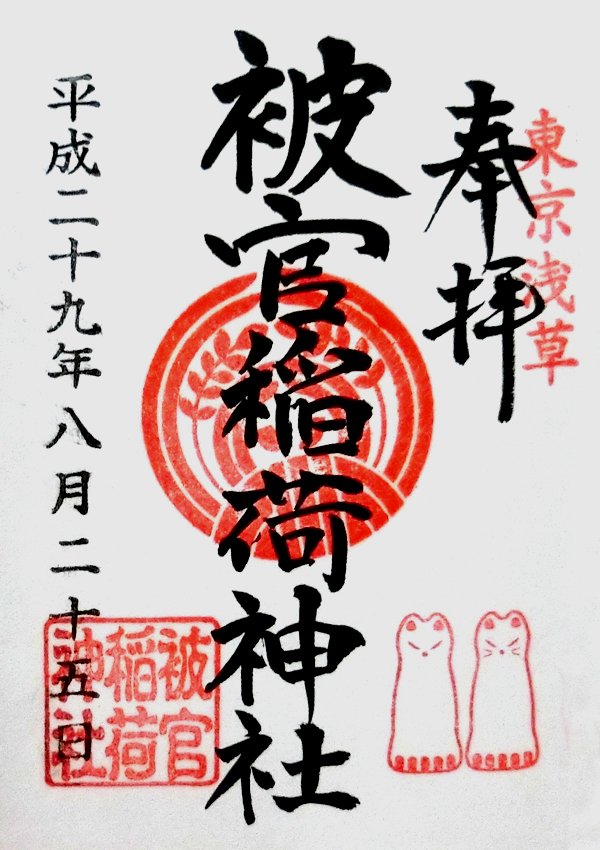 東京浅草
奉拝
被官稲荷神社
平成二十九年八月二十五日
被官
稲荷
神社